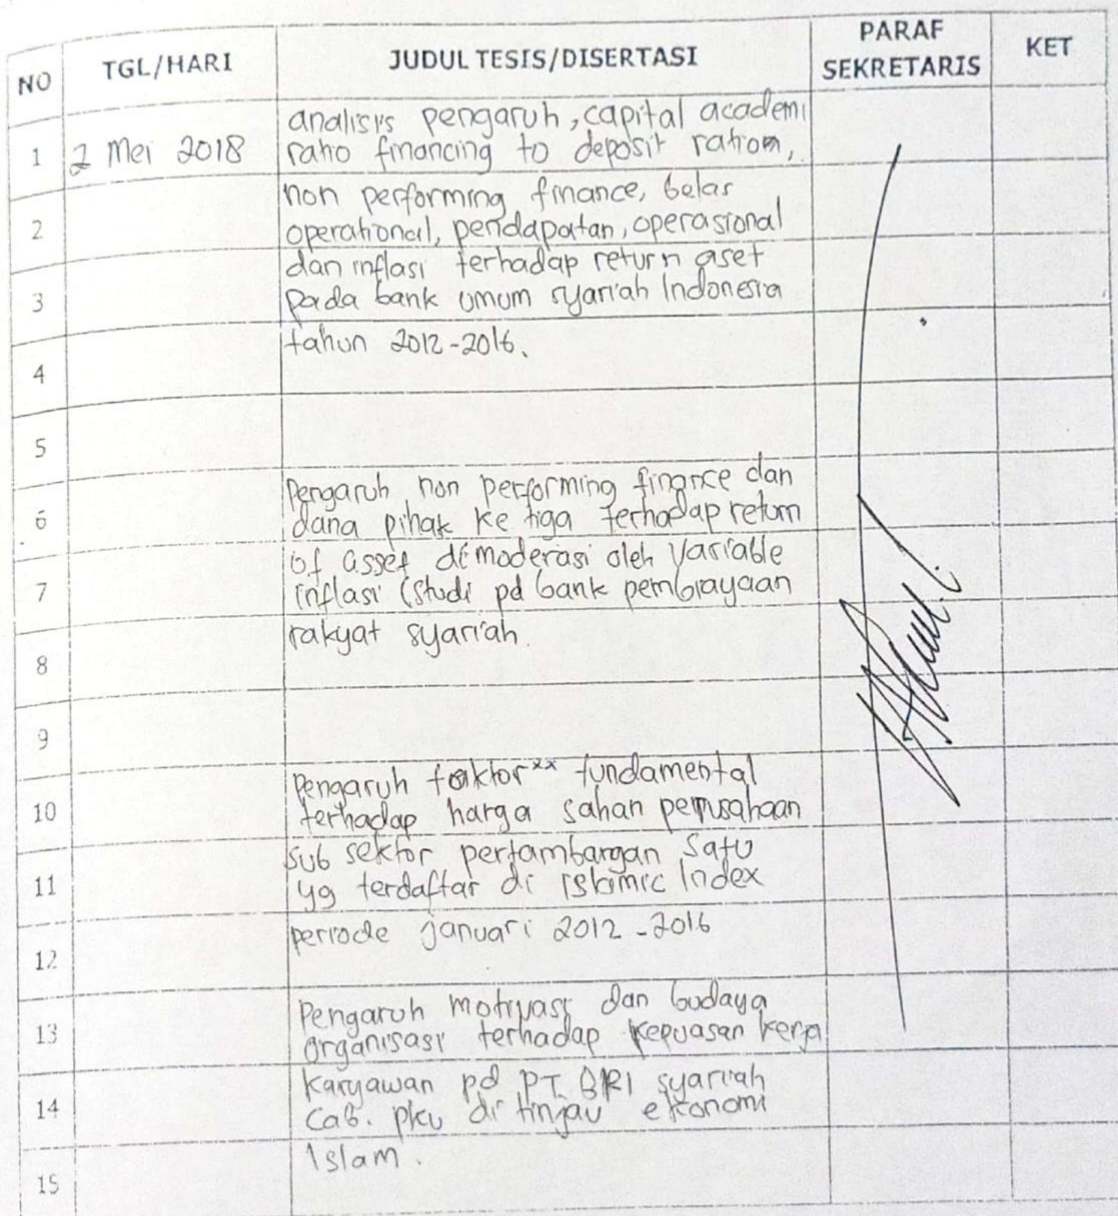 NO TGL/HARI JUDUL TESIS/DISERTASI PARAF SEKRETARIS KET
1 2 Mei 2018 analisis pengaruh, capital academi
ratio financing to deposit ration,
2 non performing finance, belas
operational, pendapatan, operasional
3 dan inflasi terhadap return aset
pada bank umum syariah Indonesia
4 tahun 2012-2016.
5
6 Pengaruh non performing finance dan
dana pihak ke tiga terhadap return
7 of asset dimoderasi oleh variable
inflasi (studi pd bank pembiayaan
8 rakyat syariah.
9
10 Pengaruh faktor** fundamental
terhadap harga sahan perusahaan
11 sub sektor pertambangan satu
yg terdaftar di Islamic Index
12 periode januari 2012-2016
13 Pengaruh motivasi dan budaya
organisasi terhadap kepuasan kerja
14 karyawan pd PT. BRI syariah
cab. pku di tinjau ekonomi
15 Islam.